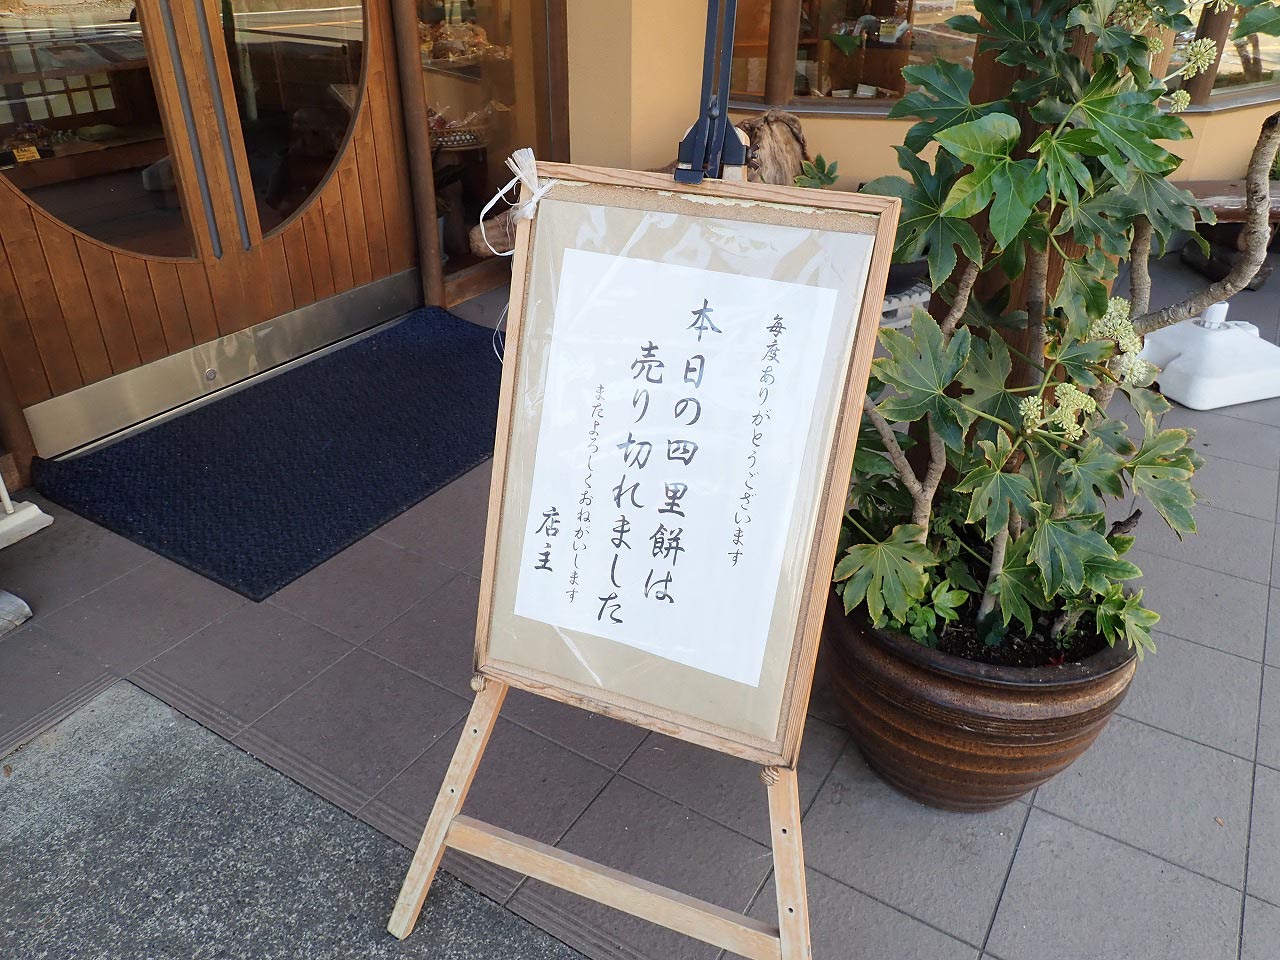 毎度ありがとうございます
本日の四里餅は
売り切れました
またよろしくおねがいします
店主